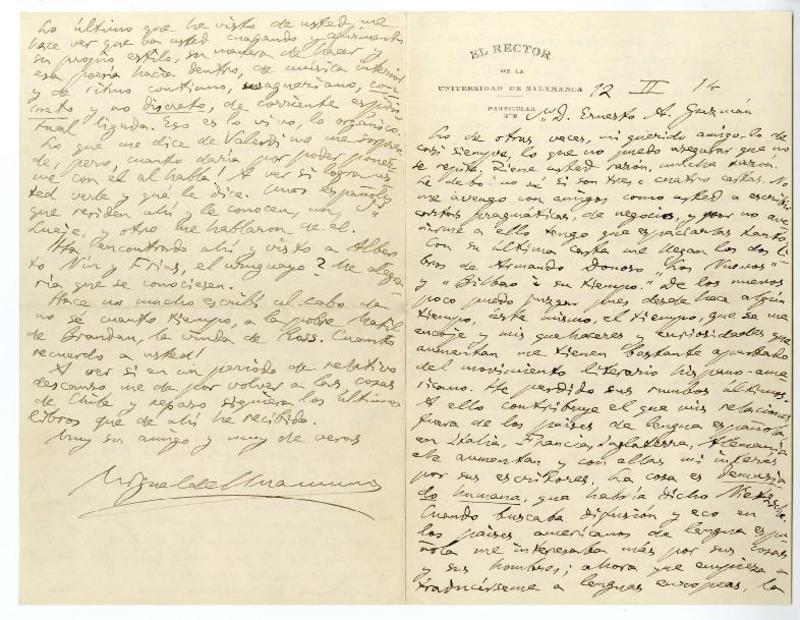 EL RECTOR
DE LA
UNIVERSIDAD DE SALAMANCA
PARTICULAR
12 II 14
Sr. D. Ernesto A. Guzmán
Lo de otras veces, mi querido amigo, lo de
casi siempre, lo que no puedo asegurar que no
se repita. Tiene usted razón, mucha razón.
Le debo no sé si son tres o cuatro cartas. No
me avengo con amigos como usted a escribir
cartas pragmáticas, de negocios, y por no ave-
nirme a ello tengo que espaciarlas tanto.
Con su última carta me llegan los dos li-
bros de Armando Donoso "Los Nuevos"
y "Bilbao i su tiempo." De los nuevos
poco puedo juzgar pues desde hace algún
tiempo, éste mismo, el tiempo, que se me
encoje y mis quehaceres y curiosidades que
aumentan me tienen bastante apartado
del movimiento literario hispano-ame-
ricano. He perdido sus rumbos últimos.
A ello contribuye el que mis relaciones
fuera de los países de lengua española
en Italia, Francia, Inglaterra, Alemania
etc aumentan y con ellas mi interés
por sus escritores. La cosa es demasia
do humana, que habría dicho Nietzsche.
Cuando buscaba difusión y eco en
los países americanos de lengua espa
ñola me interesaba más por sus cosas
y sus hombres; ahora que empieza a
traducírseme a lenguas europeas, la
Lo último que he visto de usted me
hace ver que va usted cuajando y afirmando
su propio estilo, su manera de hacer y
esa poesía hacia dentro, de música interior
y de ritmo continuo, wagneriano, con-
creto y no discreto, de corriente espiri
tual ligada. Eso es lo vivo, lo orgánico.
Lo que me dice de Valerdi no me sorpren
de, pero, cuanto daría por poder poner
me con él al habla! A ver si logra us
ted verle y qué le dice. Unos españoles
que residen ahí y le conocen, un
y otro me hablaron de él.
Ha encontrado ahí y visto a Alber
to Nin y Frías, el uruguayo? Me alegra
ría que se conociesen.
Hace no mucho escribí al cabo de
no sé cuanto tiempo, a la pobre
de Brandau, la viuda de Ross. Cuanto
recuerdo a usted!
A ver si en un periodo de relativo
descanso me da por volver a las cosas
de Chile y repaso siquiera los últimos
libros que de ahí he recibido.
Muy su amigo y muy de veras
Miguel de Unamuno